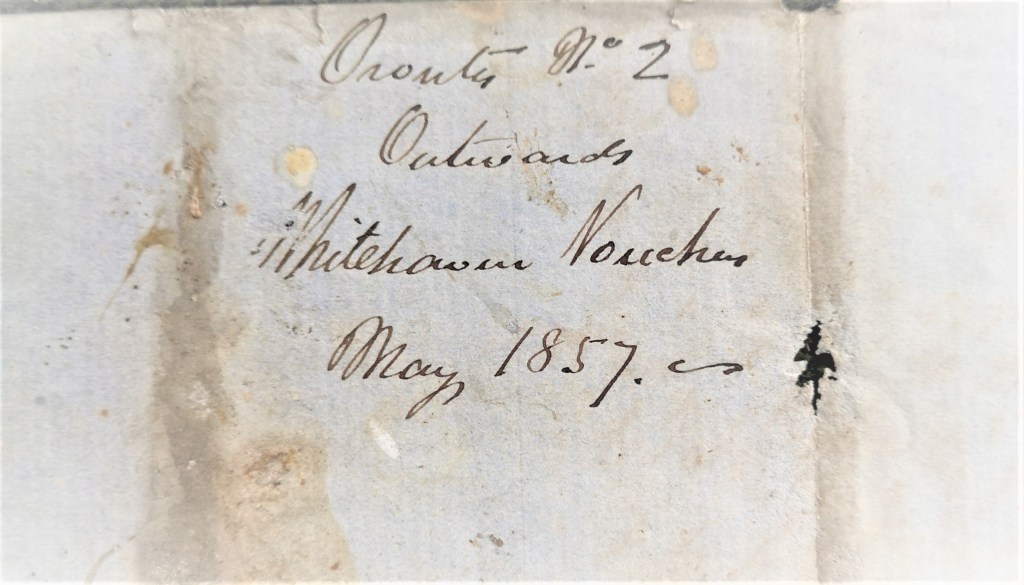 Orontes No. 2
Outwards
Whitehaven Vouchers
May 1857.